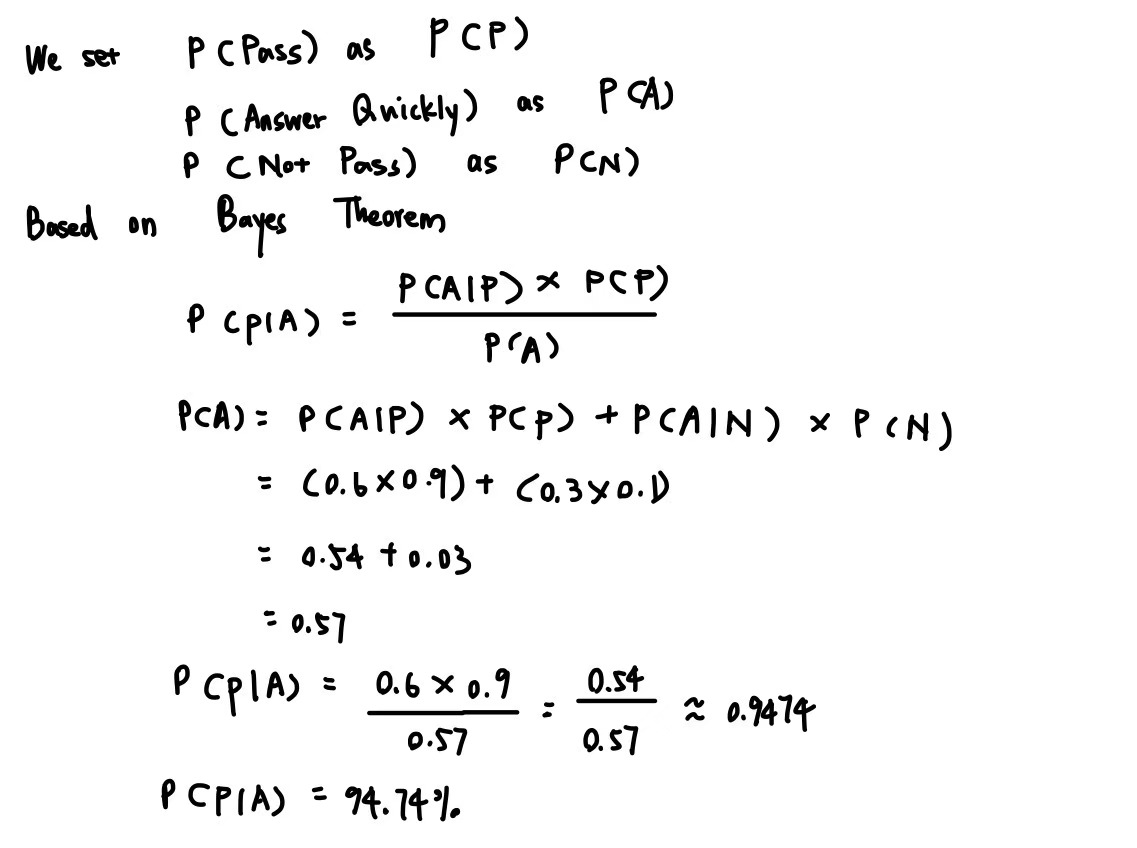 We set P(Pass) as P(P)
P(Answer Quickly) as P(A)
P(Not Pass) as P(N)
Based on Bayes Theorem
P(P|A) = P(A|P) × P(P) / P(A)
P(A) = P(A|P) × P(P) + P(A|N) × P(N)
= (0.6×0.9) + (0.3×0.1)
= 0.54 + 0.03
= 0.57
P(P|A) = 0.6 × 0.9 / 0.57 = 0.54 / 0.57 ≈ 0.9474
P(P|A) = 94.74%